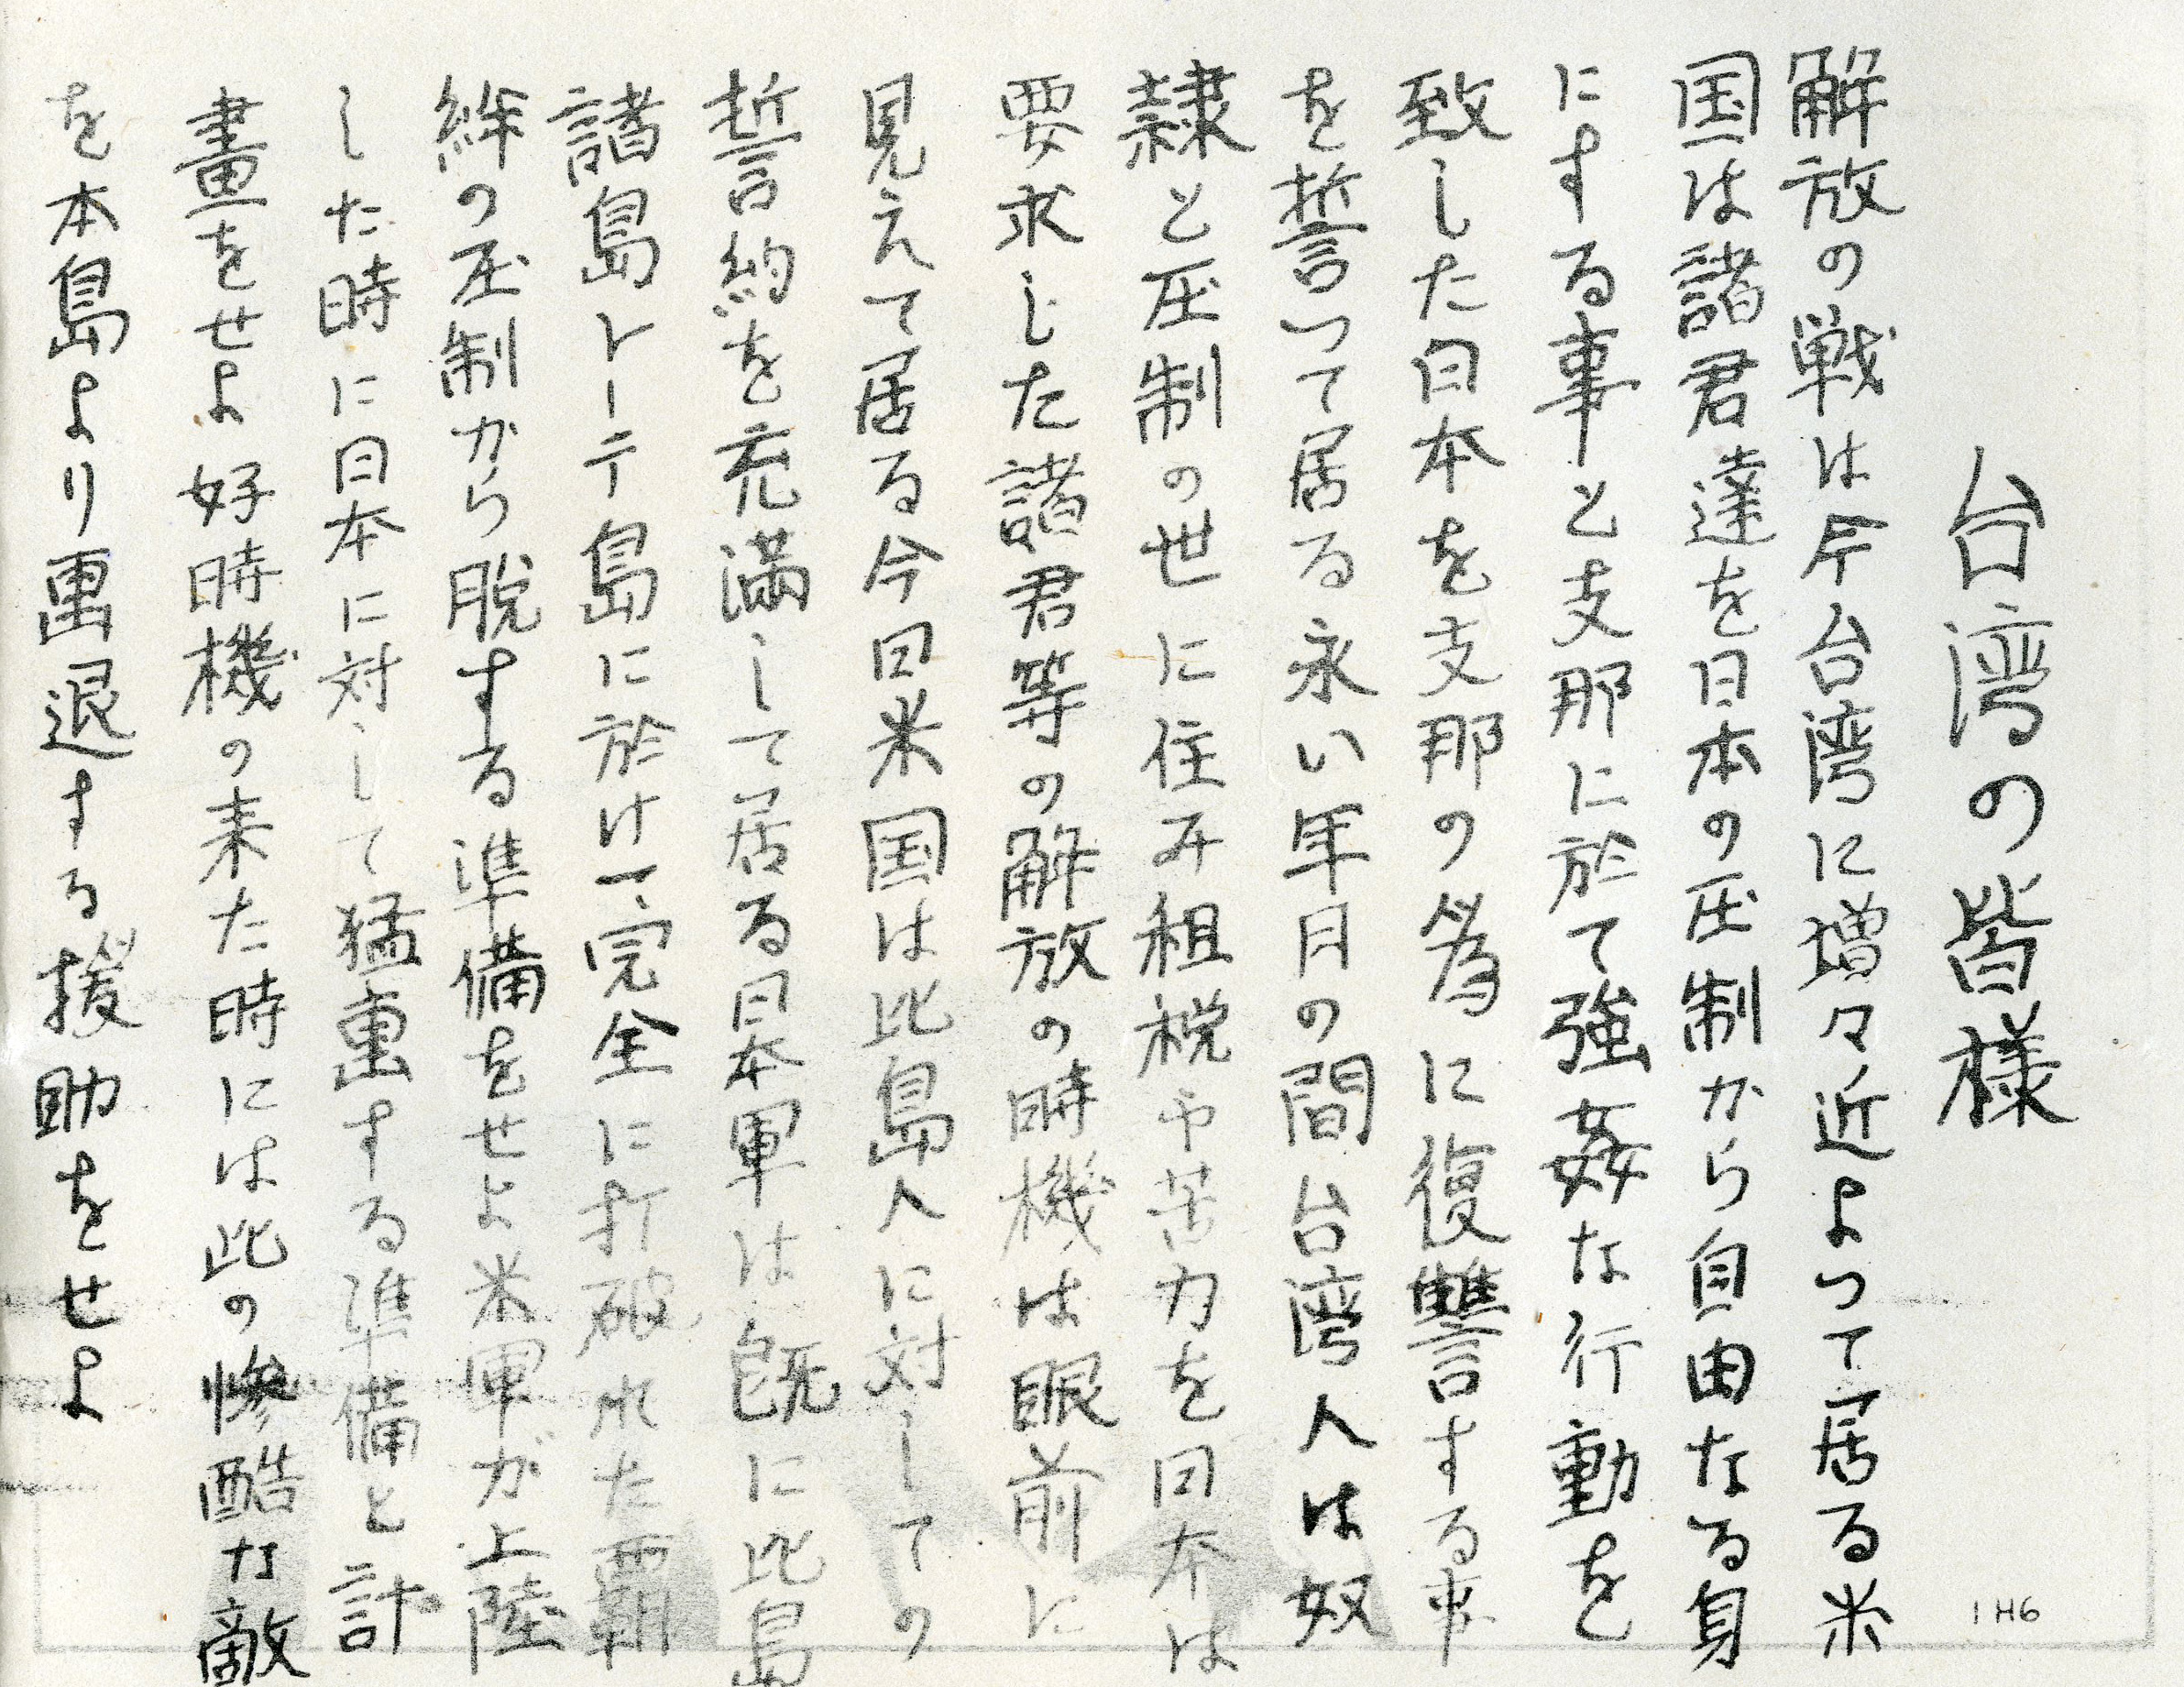 台湾の皆様
解放の戦は今台湾に増々近よって居る米
国は諸君達を日本の圧制から自由なる身
にする事と支那に於て強姦な行動を
致した日本を支那の為に復讐する事
を誓って居る永い年月の間台湾人は奴
隷と圧制の世に住み租税や苦力を日本は
要求した諸君等の解放の時機は眼前に
見えて居る今日米国は比島人に対しての
誓約を充満して居る日本軍は既に比島
諸島レーテ島に於け完全に打破れた覇
絆の圧制から脱する準備をせよ米軍が上陸
した時に日本に対して猛重する準備と計
畫をせよ好時機の来た時には此の惨酷力敵
を本島より退する援助をせよ
1H6